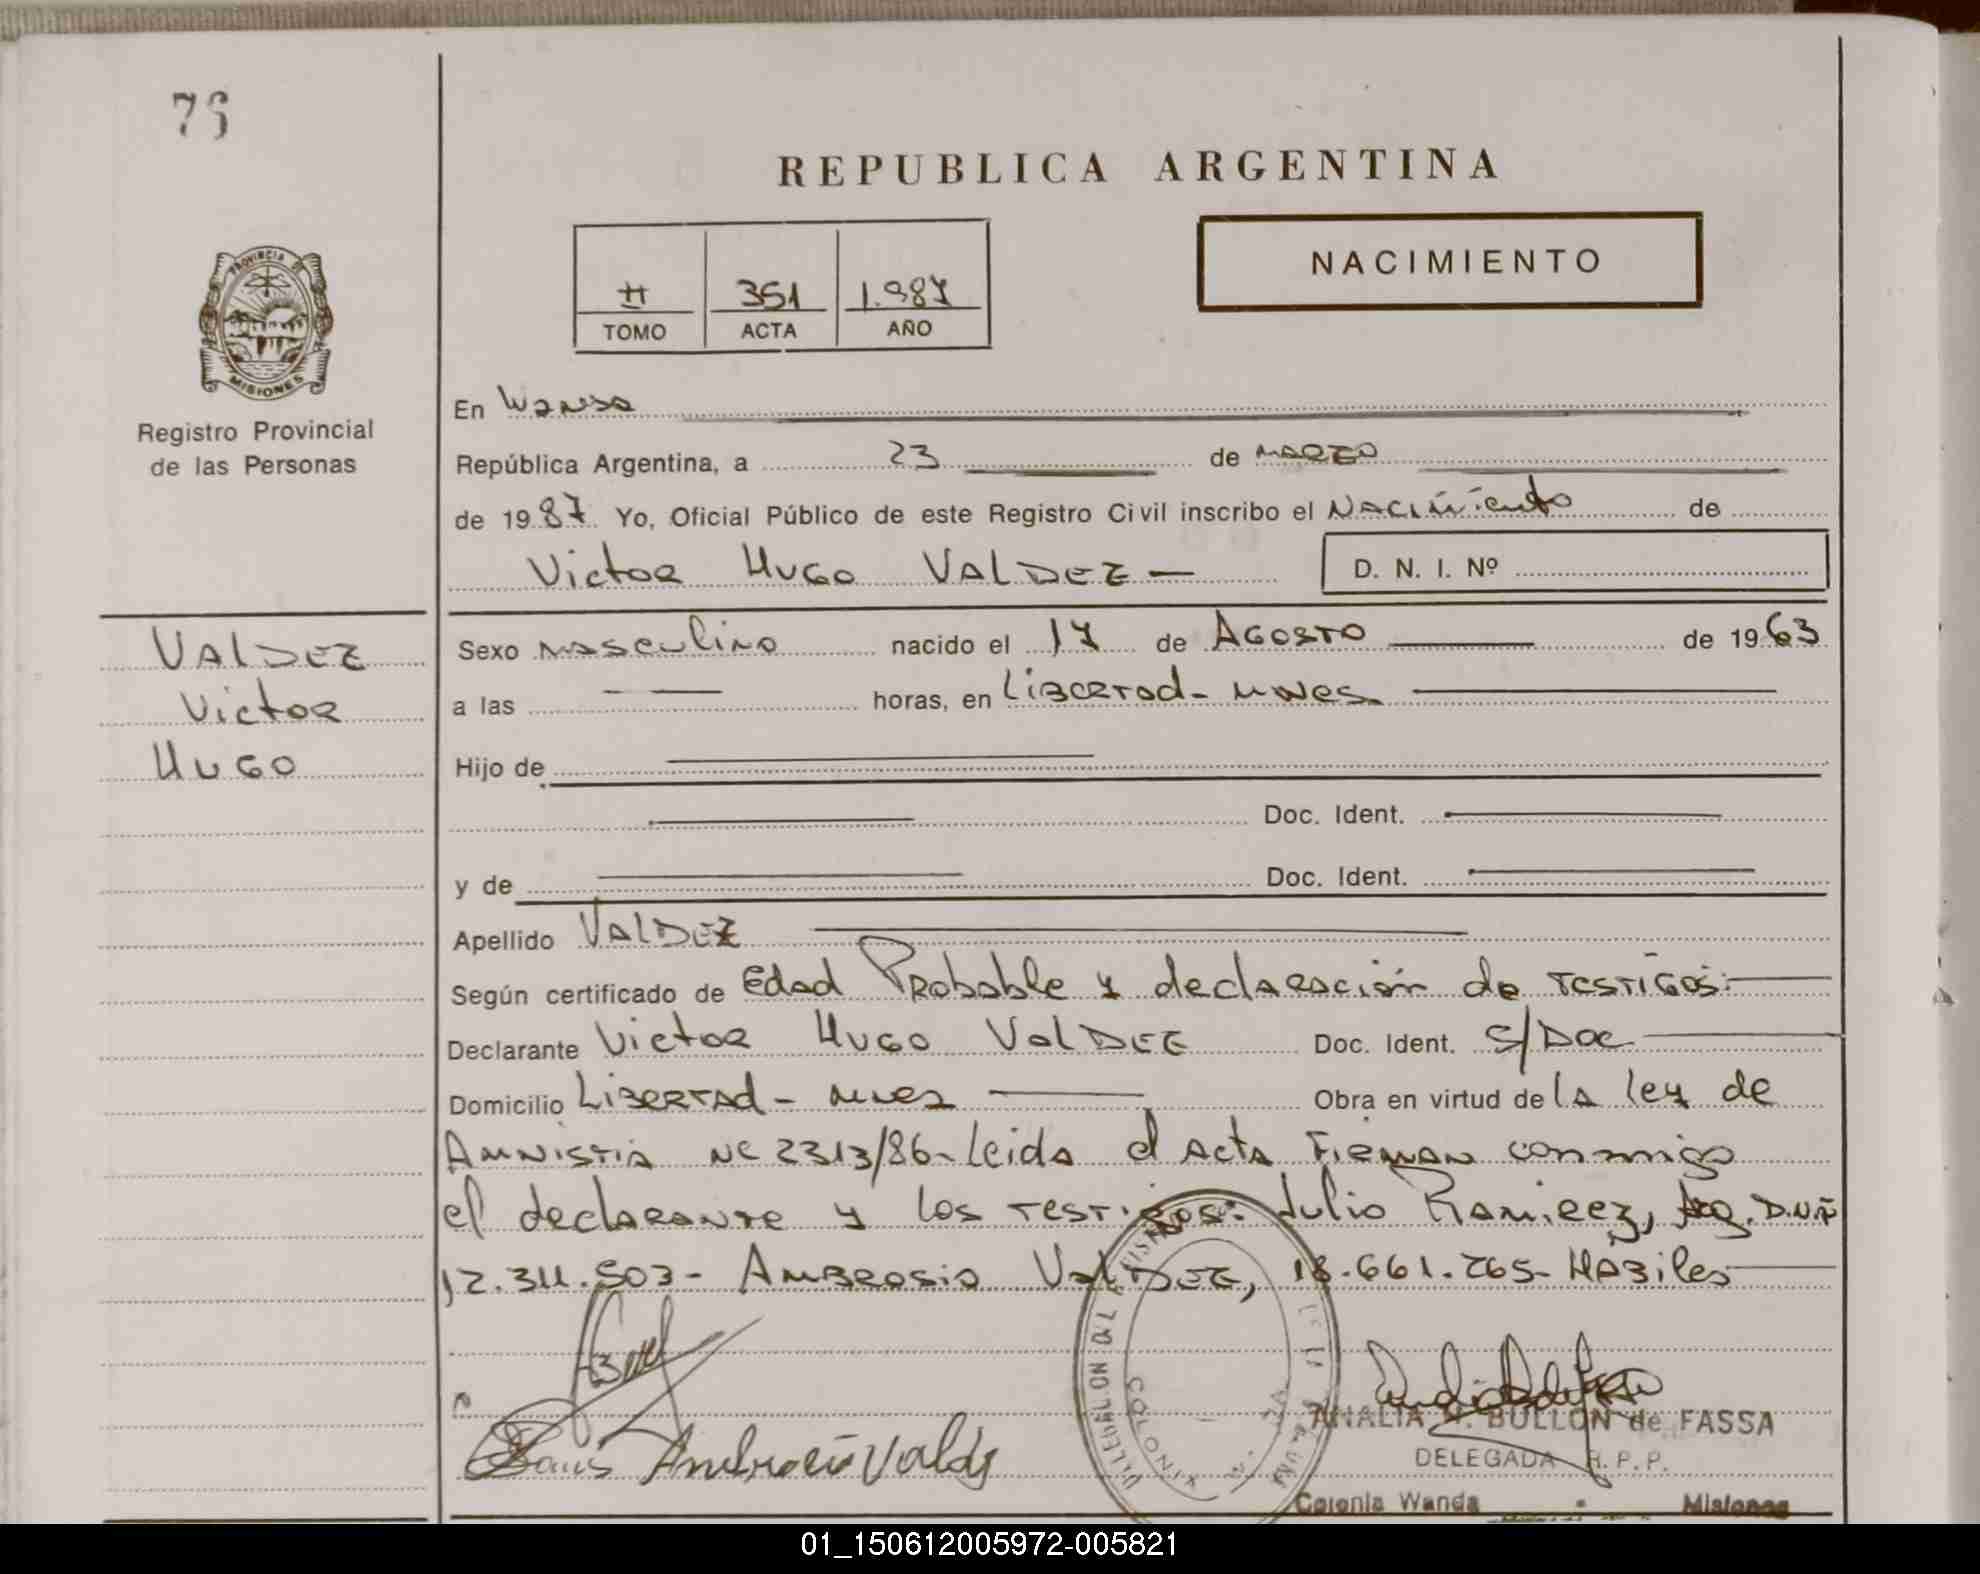 76
REPUBLICA ARGENTINA
NACIMIENTO
II 351 1.987
TOMO ACTA AÑO
PROVINCIA DE MISIONES
Registro Provincial
de las Personas
En Wanda
República Argentina, a 23 de MARZO
de 1987 Yo, Oficial Público de este Registro Civil inscribo el NACimiento de
Victor Hugo VALDEZ —
D. N. I. Nº
VALDEZ
Victor
Hugo
Sexo masculino nacido el 17 de AGOSTO de 1963
a las — horas, en Libertad - Mnes
Hijo de
Doc. Ident.
y de Doc. Ident.
Apellido VALDEZ
Según certificado de edad Probable y declaración de testigos.
Declarante Victor Hugo VALDEZ Doc. Ident. S/Doc
Domicilio Libertad - mnes Obra en virtud de la ley de
Amnistia Nº 2313/86- Leida el Acta Firman conmigo
el declarante y los testigos: Julio Ramirez, Arg. D.N.I
12.311.503- Ambrosio VALDEZ, 18.661.265- Hábiles
Ambrosio Valdz
ANALIA N. BULLON de FASSA
DELEGADA R. P. P.
Colonia Wanda - Misiones
01_150612005972-005821